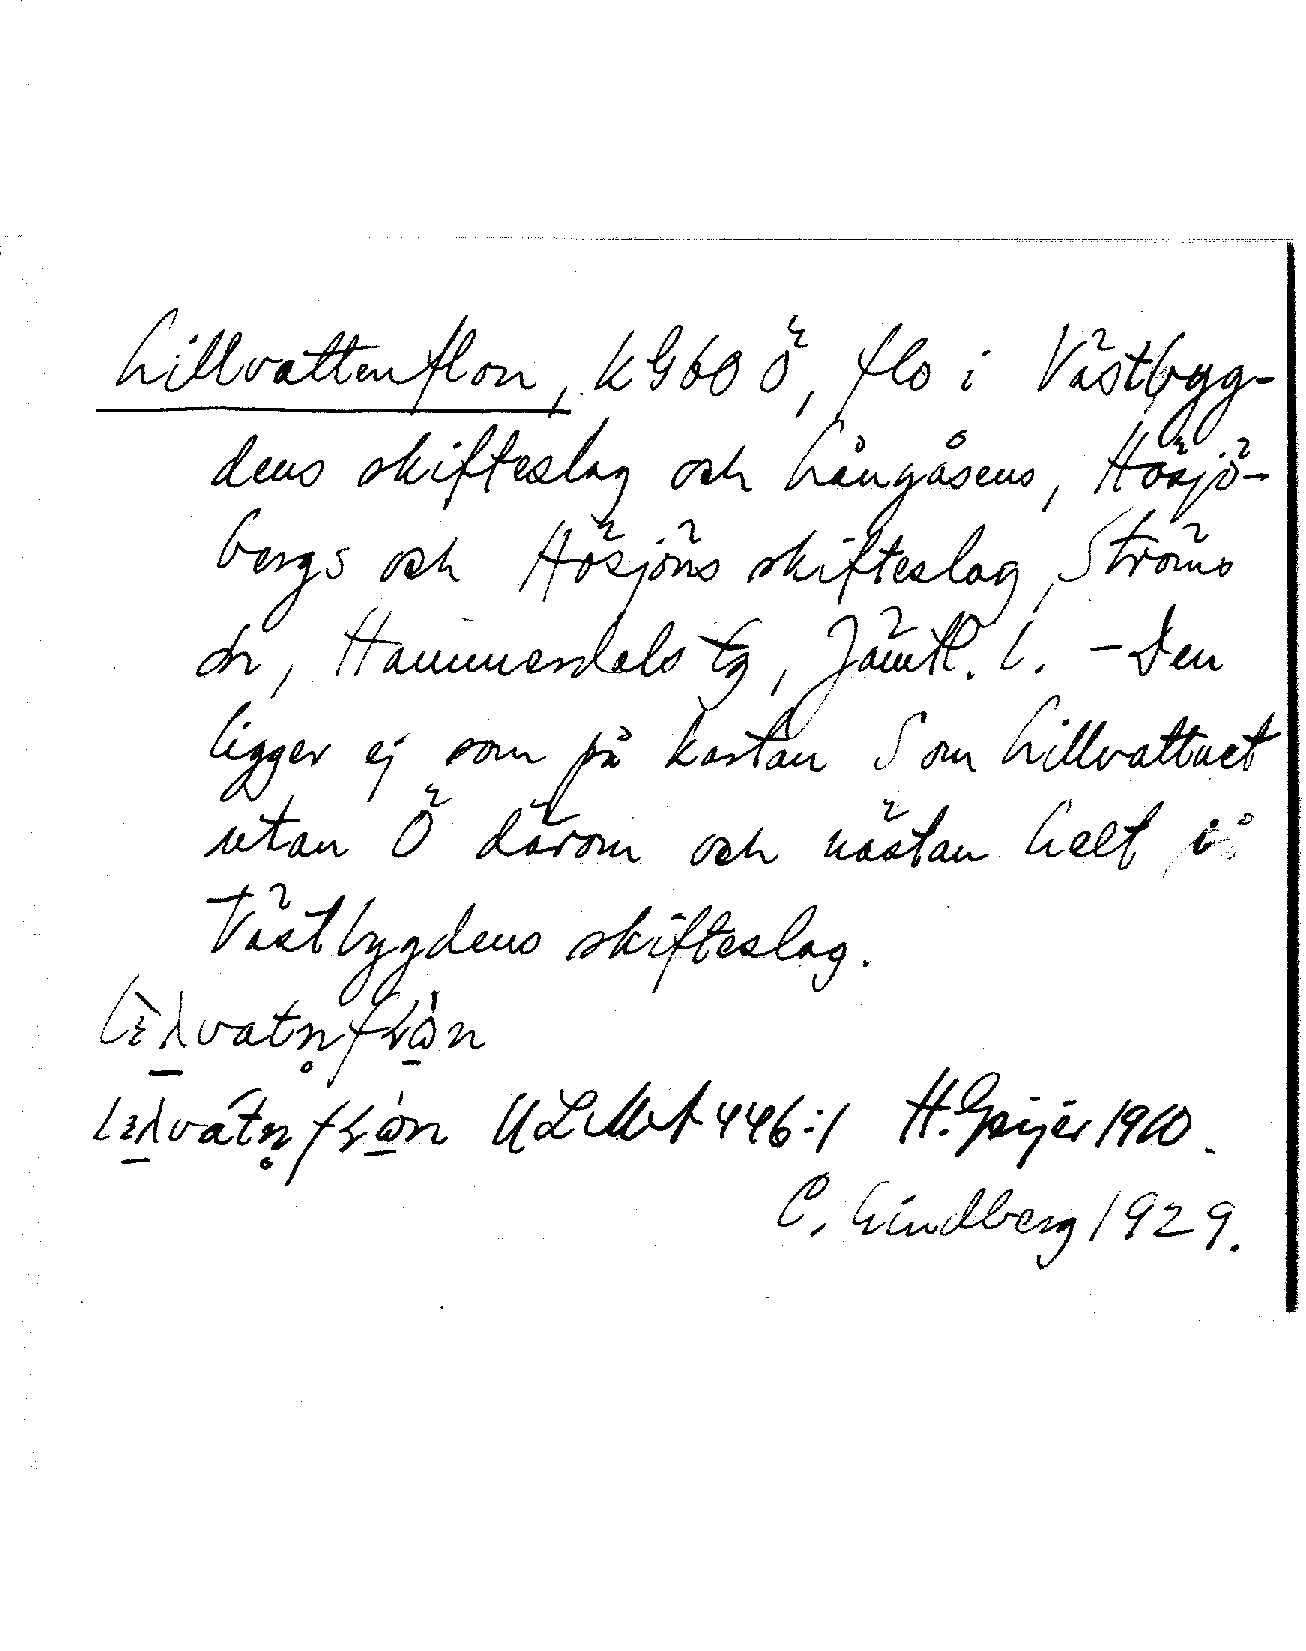 Lillvattenflon, KG60 Ö, flo i Västbyg-
dens skifteslag och Långåsens, Hösjö-
bergs och Hösjöns skifteslag, Ströms
sn, Hammerdals tg, Jämtl. l. - Den
ligger ej som på kartan S om Lillvattnet
utan Ö därom och nästan helt på
Västbygdens skifteslag.
ULMA 446:1 H. Geijer 1910.
C. Lindberg 1929.